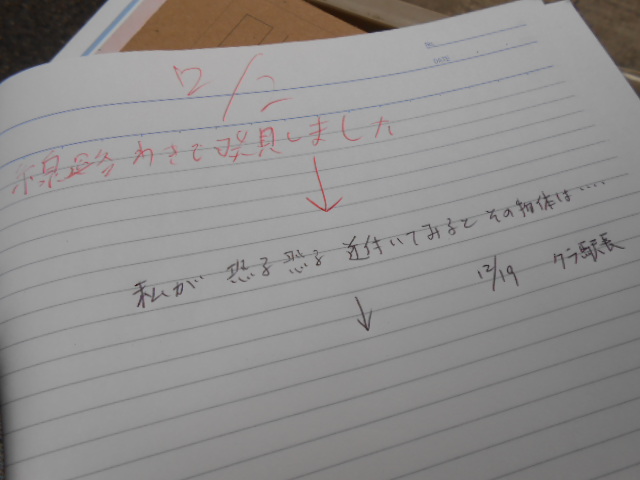 No.
DATE
7/2
線路わきで発見しました
↓
私が 恐る恐る 近付いてみるとその物体は‥‥
12/19 クラ駅長
↓